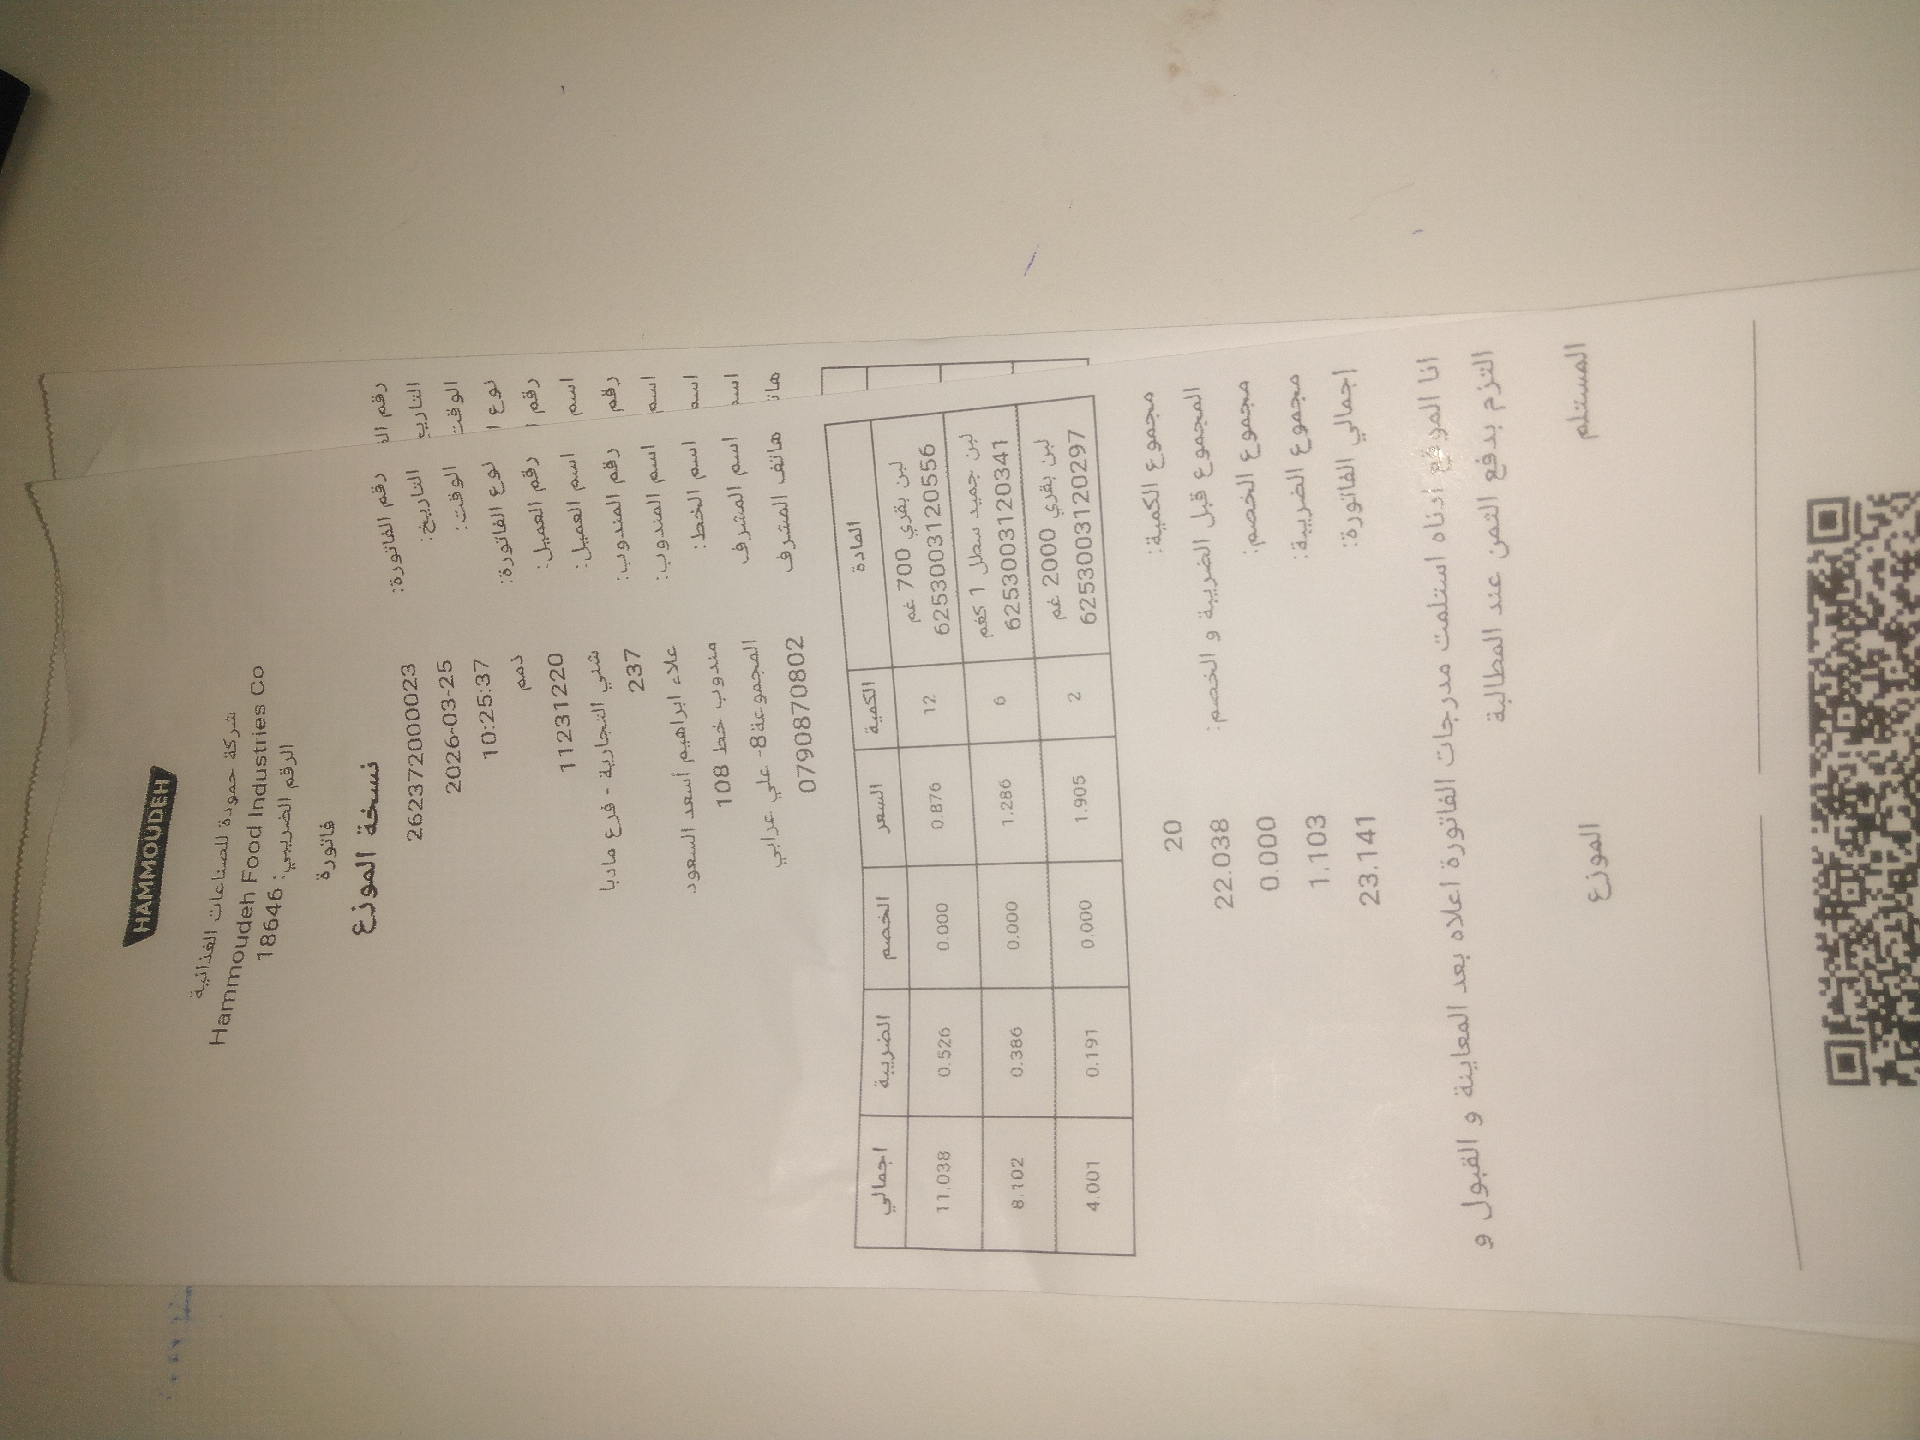 HAMMOUDEH
شركة حمودة للصناعات الغذائية
Hammoudeh Food Industries Co
الرقم الضريبي: 18646
فاتورة
نسخة الموزع
رقم الفاتورة: 26237200023
التاريخ: 2026-03-25
الوقت: 10:25:37
نوع الفاتورة: ذمم
رقم العميل: 11231220
اسم العميل: شني التجارية - فرع مادبا
رقم المندوب: 237
اسم المندوب: علاء ابراهيم أسعد السعود
اسم الخط: مندوب خط 108
اسم المشرف المجموعة8- علي عرابي
هاتف المشرف 0790870802
المادة الكمية السعر الخصم الضريبة اجمالي
لبن بقري 700 غم
6253003120556 12 0.876 0.000 0.526 11.038
لبن جميد سطل 1 كغم
6253003120341 6 1.286 0.000 0.386 8.102
لبن بقري 2000 غم
6253003120297 2 1.905 0.000 0.191 4.001
مجموع الكمية: 20
المجموع قبل الضريبة و الخصم: 22.038
مجموع الخصم: 0.000
مجموع الضريبة: 1.103
اجمالي الفاتورة: 23.141
انا الموقع ادناه استلمت مدرجات الفاتورة اعلاه بعد المعاينة و القبول و
التزم بدفع الثمن عند المطالبة
المستلم الموزع